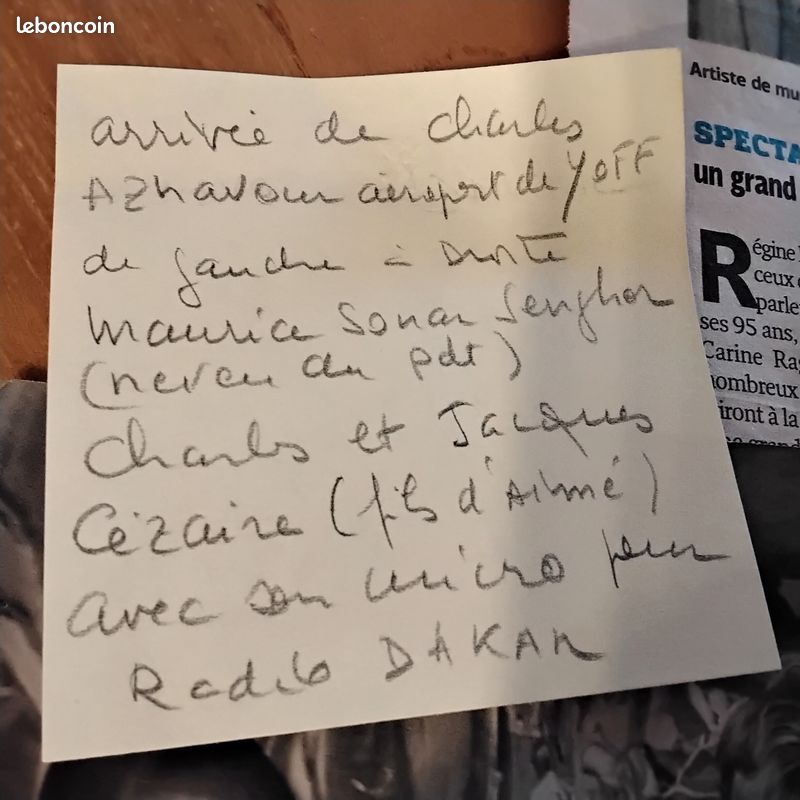 leboncoin
arrivée de charles
AZnavour aéroport de YOFF
de gauche à DROITE
Maurice Sonar Senghor
(neveu du pdt)
Charles et Jacques
Cézaire (fils d'Aimé)
avec son micro pour
Radio DAKAR
Artiste de mu
SPECTA
un grand
Régine
ceux
parle
ses 95 ans,
Carine Ra
nombreux
iront à la